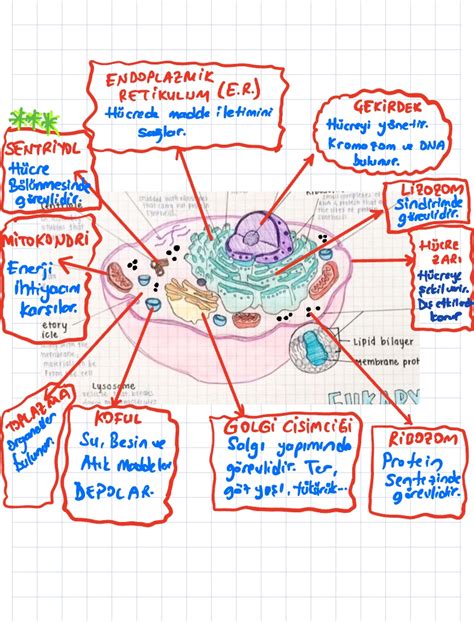 ENDOPLAZMİK
RETİKULUM (E.R.)
Hücrede madde iletimini
Sağlar.
GEKİRDEK
Hücreyi yönetir.
Kromozom ve DNA
bulunur.
SENTRİYOL
Hücre
Bölünmesinde
görevlidir.
LİZOZOM
Sindirimde
görevlidir.
MİTOKONDRİ
Enerji
ihtiyacını
karşılar.
HÜCRE
ZARI
Hücreye
şekil verir.
Dış etkilerden
korur
etory
icle
Lipid bilayer
Membrane prot
Lysosome
EUKARY
TOPLAZMA
Organeller
bulunur.
KOFUL
Su, Besin ve
Atık Maddeler
DEPOLAR.
GOLGİ CİSİMCİĞİ
Salgı yapımında
görevlidir. Ter,
göz yaşı, tükürük...
RİBOZOM
Protein
Sentezinde
görevlidir.